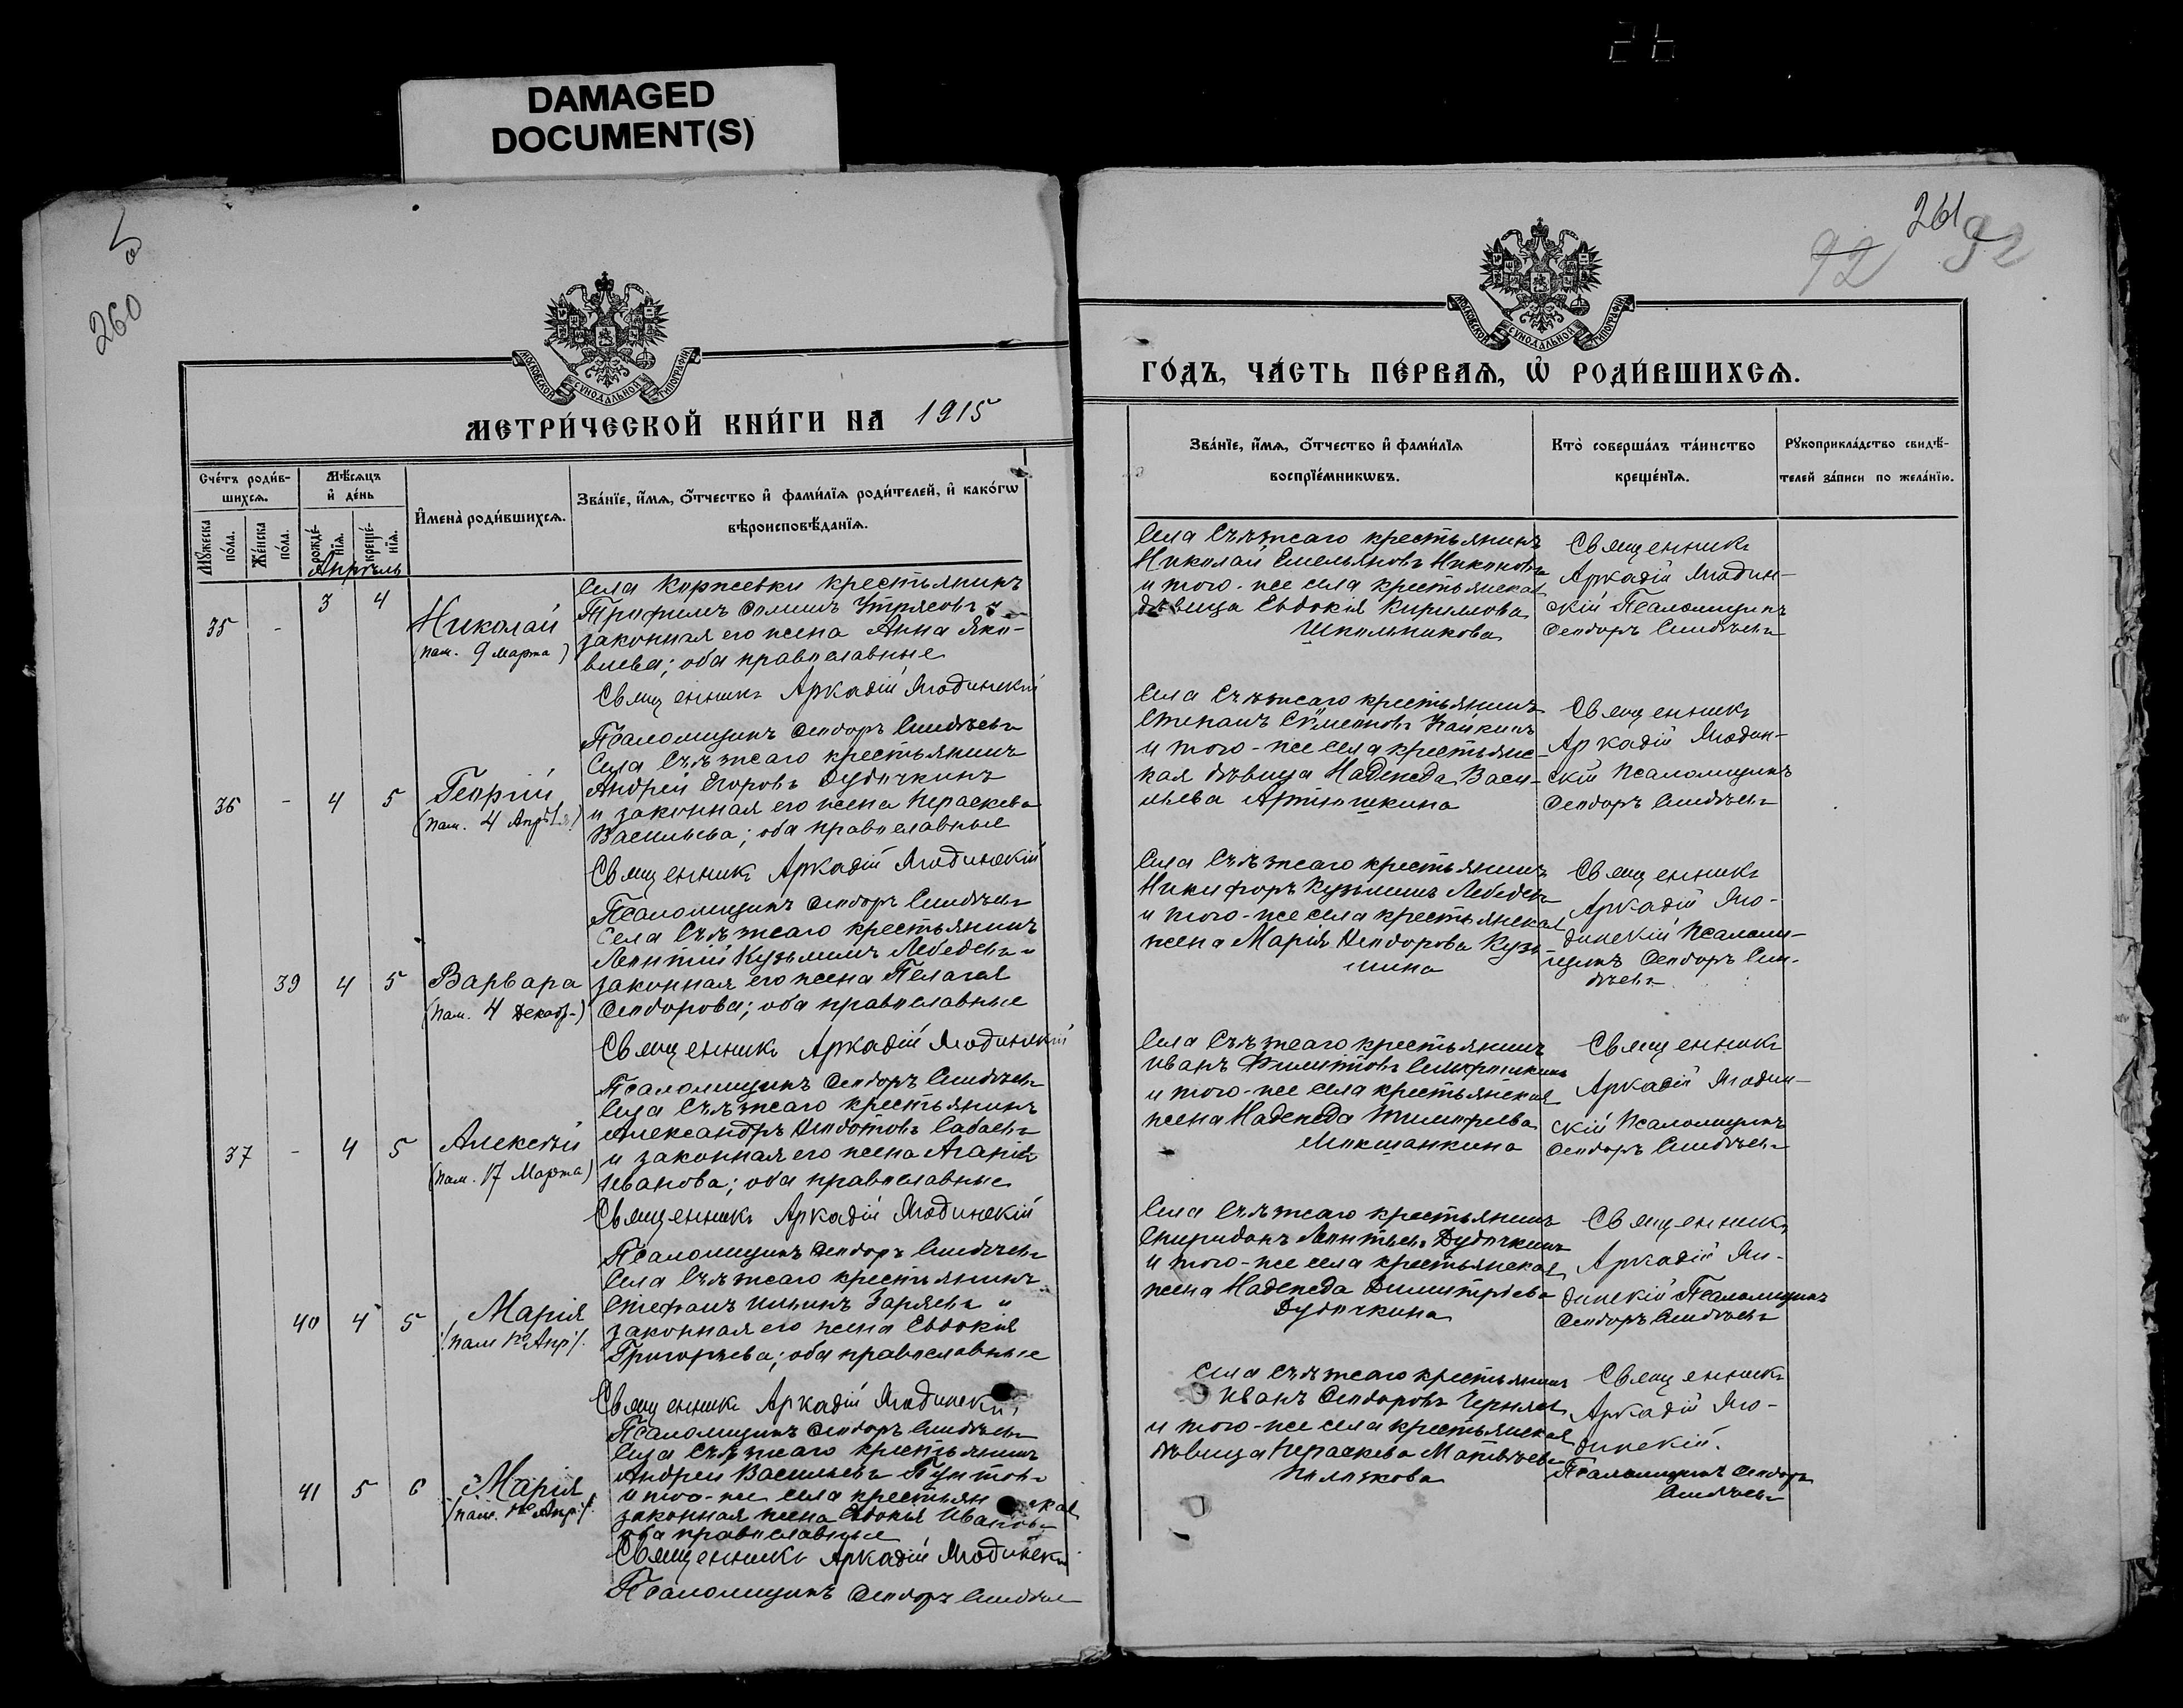 26
DAMAGED
DOCUMENT(S)
260
МОСКОВСКОЙ СѴНОДАЛЬНОЙ ТИПОГРАФІИ
МЕТРИ́ЧЕСКОЙ КНИ́ГИ НА 1915
Сче́тъ роди́в-
шихсѧ.
Мѣ́сѧцъ
и҆ де́нь
Мꙋ́жеска
по́ла.
Же́нска
по́ла.
рожде́-
нїѧ.
креще́-
нїѧ.
И҆мена̀ роди́вшихсѧ.
Зва́нїе, и҆́мѧ, ѻ҆́тчество и҆ фами́лїѧ роди́телей, и҆ како́гѡ
вѣроисповѣ́данїѧ.
Апрѣль
35 - 3 4
Николай
(пам. 9 Марта)
Села Коржевки крестьянинъ
Трофимъ Ѳоминъ Утрясовъ и
законная его жена Анна Яко-
влева; оба православные
Священникъ Аркадій Ягодинскій
Псаломщикъ Ѳеодоръ
36 - 4 5
Георгій
(пам. 4 Апрѣля)
Села Съѣзжаго крестьянинъ
Андрей Егоровъ Дудочкинъ
и законная его жена Параскева
Васильева; оба православные
Священникъ Аркадій Ягодинскій
Псаломщикъ Ѳеодоръ
39 4 5
Варвара
(пам. 4 Декаб.)
Села Съѣзжаго крестьянинъ
Леонтій Кузьминъ Лебедевъ и
законная его жена Пелагея
Ѳеодорова; оба православные
Священникъ Аркадій Ягодинскій
Псаломщикъ Ѳеодоръ
37 - 4 5
Алексѣй
(пам. 17 Марта)
Села Съѣзжаго крестьянинъ
Александръ Ѳедотовъ
и законная его жена Агапія
Иванова; оба православные
Священникъ Аркадій Ягодинскій
Псаломщикъ Ѳеодоръ
40 4 5
Марія
(пам 1го Апр.)
Села Съѣзжаго крестьянинъ
Стефанъ Ильинъ Заряевъ и
законная его жена Евдокія
Григорьева; оба православные
Священникъ Аркадій Ягодинскій
Псаломщикъ Ѳеодоръ
41 5 6
Марія
(пам. 1го Апр.)
Села Съѣзжаго крестьянинъ
Андрей Васильевъ
и того-же села крестьянская
законная жена Евдокія Иванова
оба православные
Священникъ Аркадій Ягодинскій
Псаломщикъ Ѳеодоръ
261
92 92
МОСКОВСКОЙ СѴНОДАЛЬНОЙ ТИПОГРАФІИ
ГО́ДЪ, ЧА́СТЬ ПЕ́РВАѦ, Ѡ҆ РОДИ́ВШИХСѦ.
Зва́нїе, и҆́мѧ, ѻ҆́тчество и҆ фами́лїѧ
воспрїе́мникѡвъ.
Кто̀ соверша́лъ та́инство
креще́нїѧ.
Рꙋкоприкла́дство свидѣ́-
телей за́писи по жела́нїю.
Села Съѣзжаго крестьянинъ
Николай Емельяновъ Никоновъ
и того-же села крестьянская
дѣвица Евдокія Кирилова
Школьникова
Священникъ
Аркадій Ягодин-
скій Псаломщикъ
Ѳеодоръ
Села Съѣзжаго крестьянинъ
Степанъ
и того-же села крестьянс-
кая дѣвица Надежда Васи-
льева Артюшкина
Священникъ
Аркадій Ягодин-
скій Псаломщикъ
Ѳеодоръ
Села Съѣзжаго крестьянинъ
Никифоръ Кузьминъ Лебедевъ
и того-же села крестьянская
жена Марія Ѳеодорова Кузь-
мина
Священникъ
Аркадій Яго-
динскій Псалом-
щикъ Ѳеодоръ
Села Съѣзжаго крестьянинъ
Иванъ
и того-же села крестьянская
жена Надежда Тимофеева
Мокшанкина
Священникъ
Аркадій Ягодин-
скій Псаломщикъ
Ѳеодоръ
Села Съѣзжаго крестьянинъ
Спиридонъ Леонтьевъ Дудочкинъ
и того-же села крестьянская
жена Надежда Димитріева
Дудочкина
Священникъ
Аркадій Яго-
динскій Псаломщикъ
Ѳеодоръ
Села Съѣзжаго крестьянинъ
Иванъ Ѳеодоровъ
и того-же села крестьянская
дѣвица Параскева Матвѣева
Священникъ
Аркадій Яго-
динскій.
Псаломщикъ Ѳеодоръ